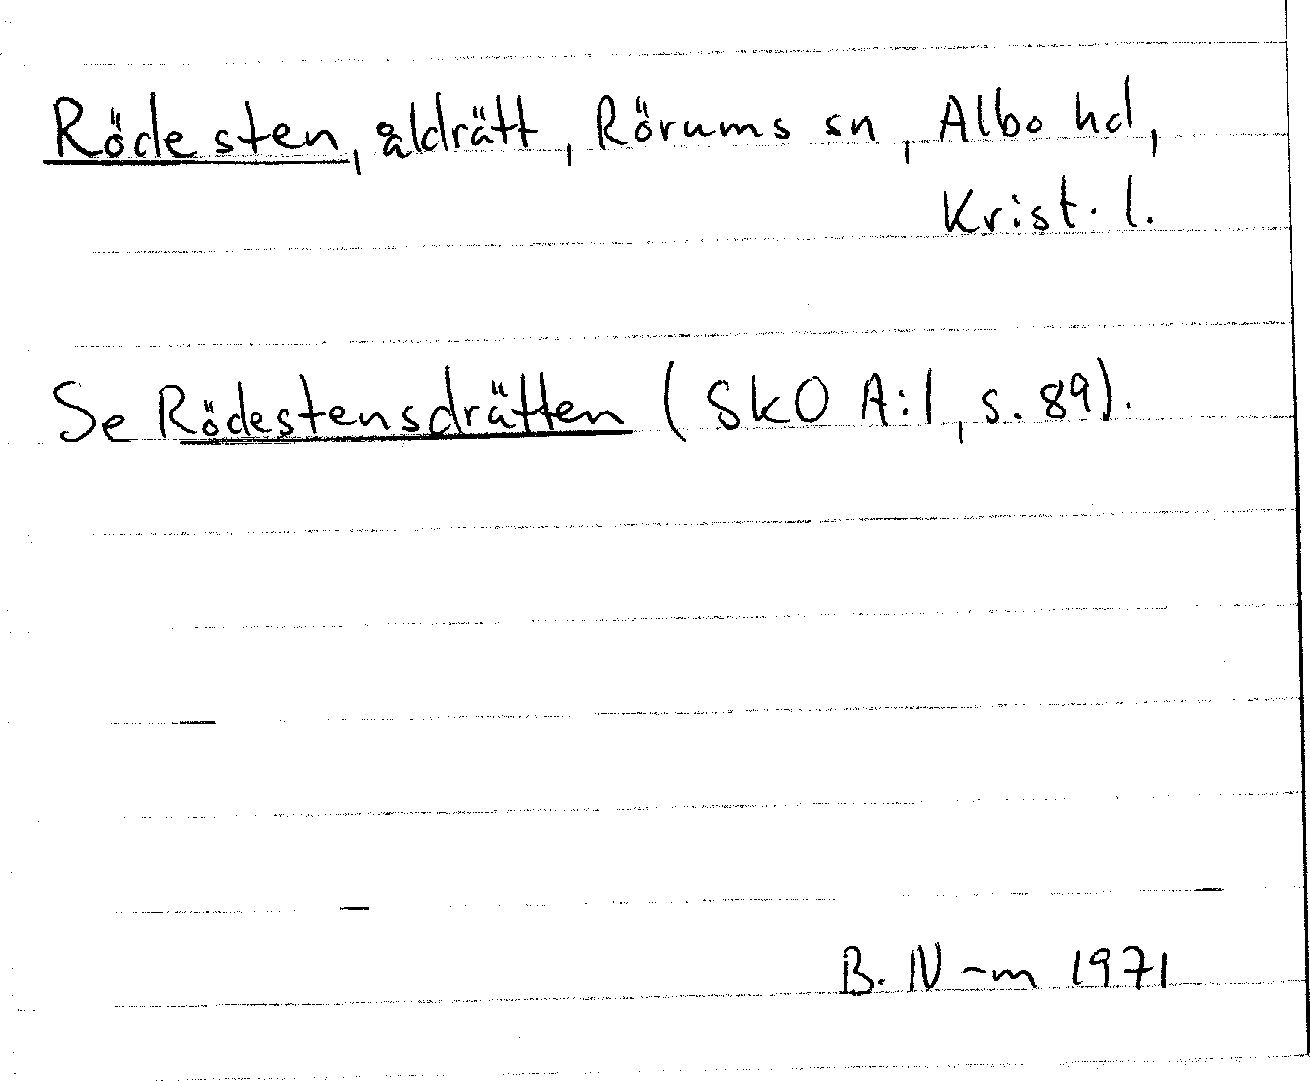 Röde sten, åldrätt, Rörums sn, Albo hd,
Krist. l.
Se Rödestensdrätten (SkO A:1, s. 89).
B. N-m 1971